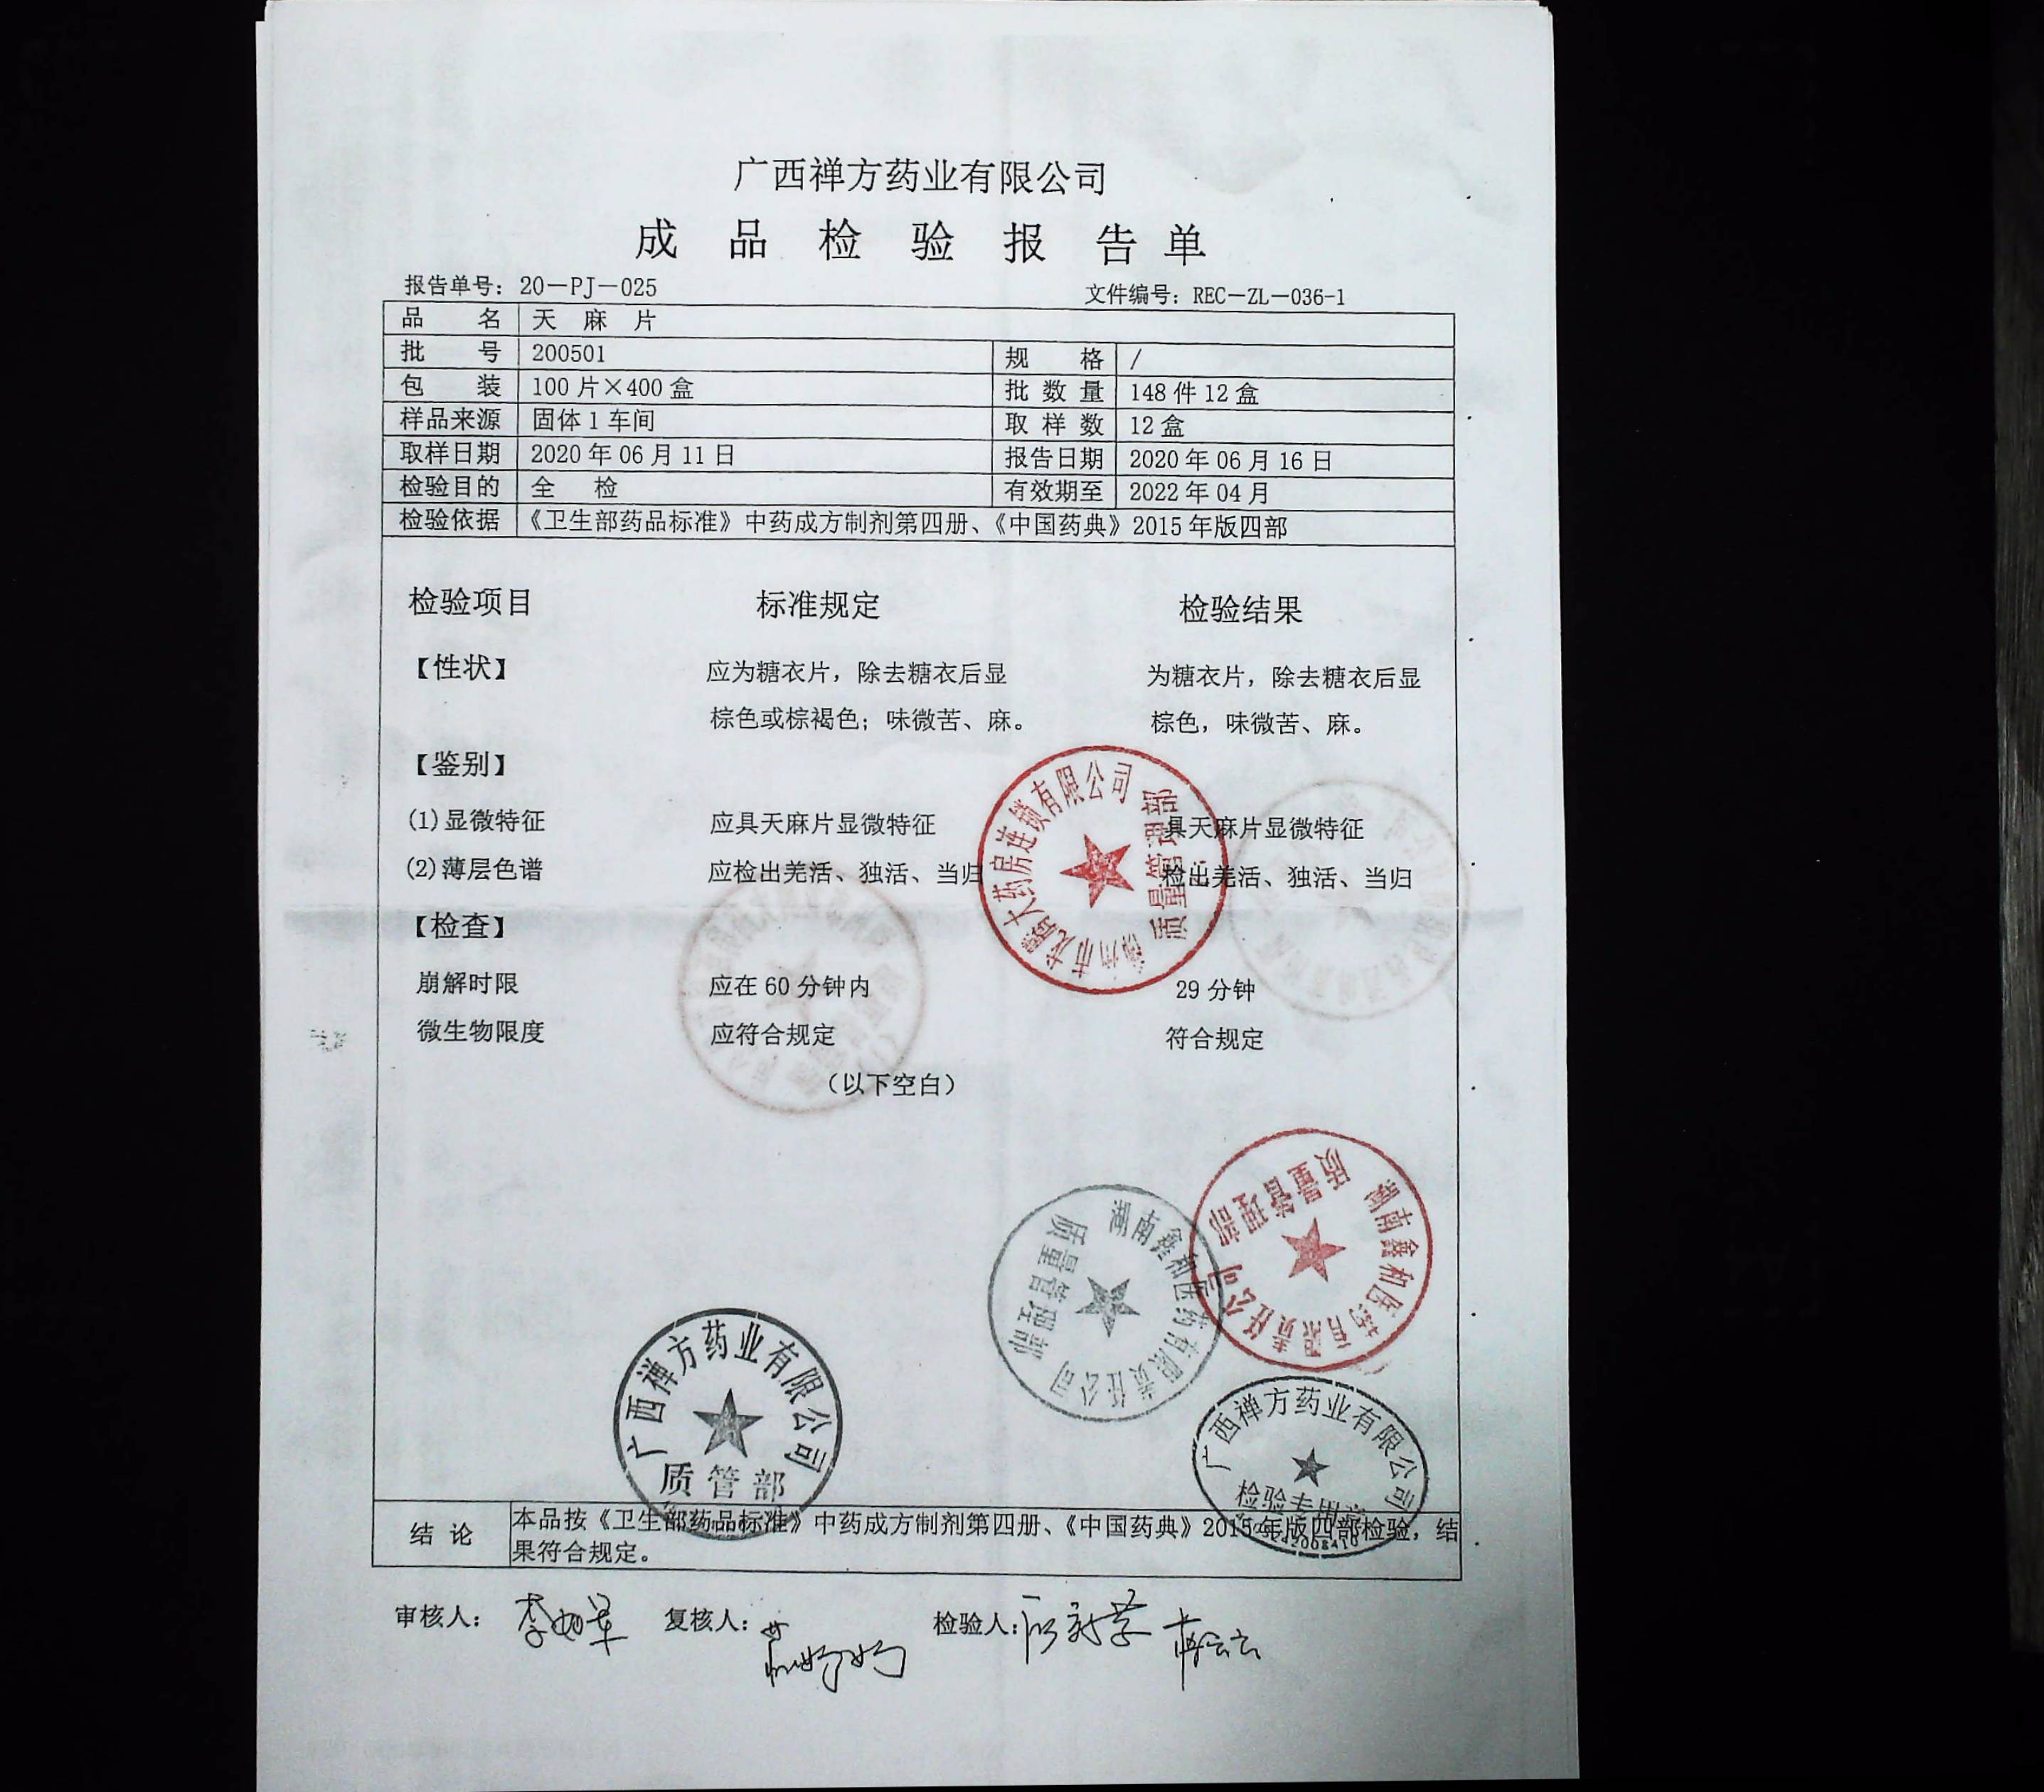 广西禅方药业有限公司
成品检验报告单
报告单号：20－PJ－025 文件编号：REC－ZL－036-1
品名 天麻片
批号 200501 规格 /
包装 100片×400盒 批数量 148件12盒
样品来源 固体1车间 取样数 12盒
取样日期 2020年06月11日 报告日期 2020年06月16日
检验目的 全检 有效期至 2022年04月
检验依据 《卫生部药品标准》中药成方制剂第四册、《中国药典》2015年版四部
检验项目 标准规定 检验结果
【性状】 应为糖衣片，除去糖衣后显 为糖衣片，除去糖衣后显
棕色或棕褐色；味微苦、麻。 棕色，味微苦、麻。
【鉴别】
(1)显微特征 应具天麻片显微特征 具天麻片显微特征
(2)薄层色谱 应检出羌活、独活、当归 检出羌活、独活、当归
【检查】
崩解时限 应在60分钟内 29分钟
微生物限度 应符合规定 符合规定
（以下空白）
大药房连锁有限公司
质量管理部
湖南鑫和医药有限责任公司
质量管理部
湖南鑫和医药有限责任公司
质量管理部
广西禅方药业有限公司
质管部
广西禅方药业有限公司
检验专用章
结论 本品按《卫生部药品标准》中药成方制剂第四册、《中国药典》2015年版四部检验，结
果符合规定。
审核人： 复核人： 检验人：